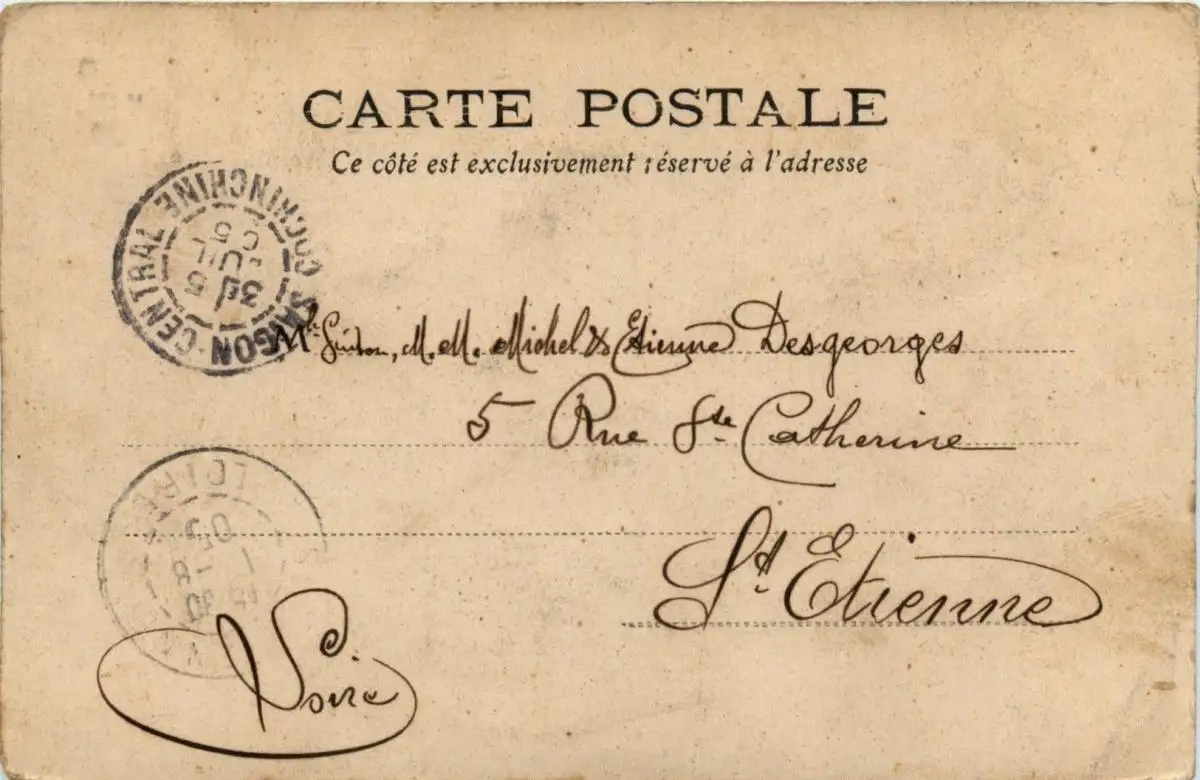 CARTE POSTALE
Ce côté est exclusivement réservé à l'adresse
SAIGON-CENTRAL COCHINCHINE
3E 5
JUIL
05
M. M. Michel & Etienne Desgeorges
5 Rue Ste Catherine
St Etienne
LOIRE
05
Loire